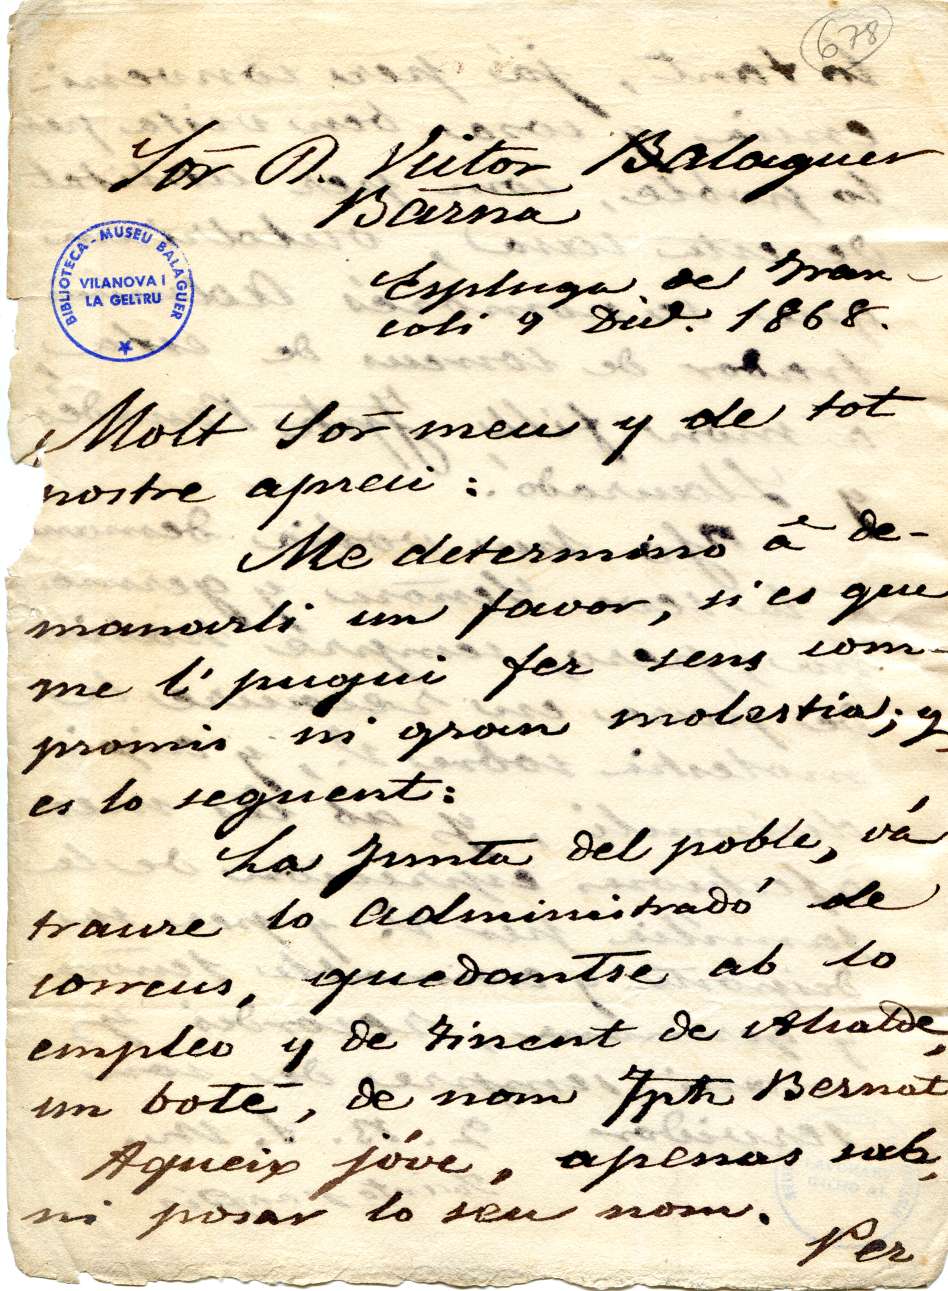 678
Sor̃ D. Victor Balaguer
Barña
BIBLIOTECA - MUSEU BALAGUER
VILANOVA I
LA GELTRU
Espluga de Fran-
coli 9 Dic.e 1868.
Molt Sor̃ meu y de tot
nostre apreci:
Me determino á de-
manarli un favor, si es que
me l'pugui fer sens com-
promis ni gran molestia; y
es lo seguent:
La Junta del poble, vá
traure lo administradó de
correus, quedantse ab lo
empleo y de Tinent de Alcalde,
un boté, de nom Jph Bernat
Aqueix jóve, apenas sab,
ni posar lo séu nom.
Per